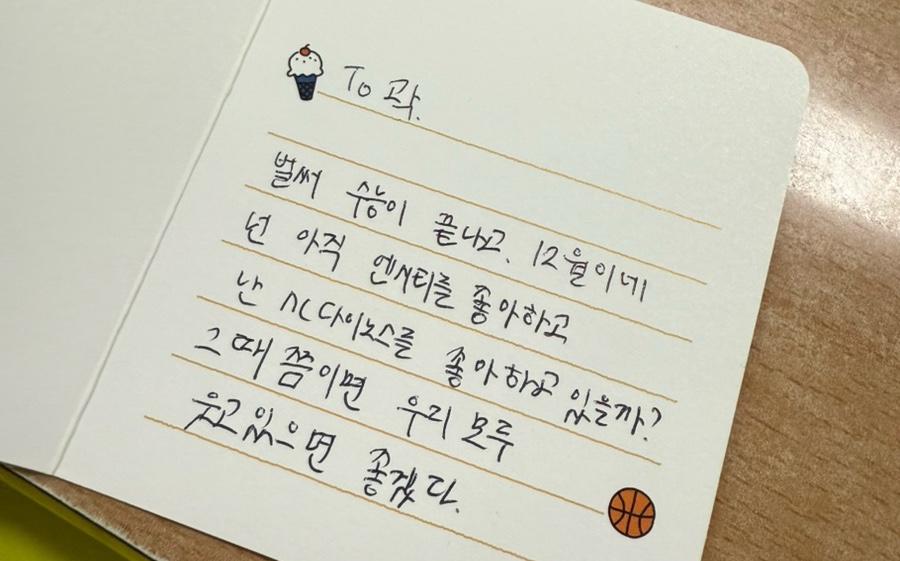 To 곽.
벌써 수능이 끝나고. 12월이네
넌 아직 엔시티를 좋아하고
난 NC다이노스를 좋아하고 있을까?
그때쯤이면 우리 모두
웃고있으면 좋겠다.